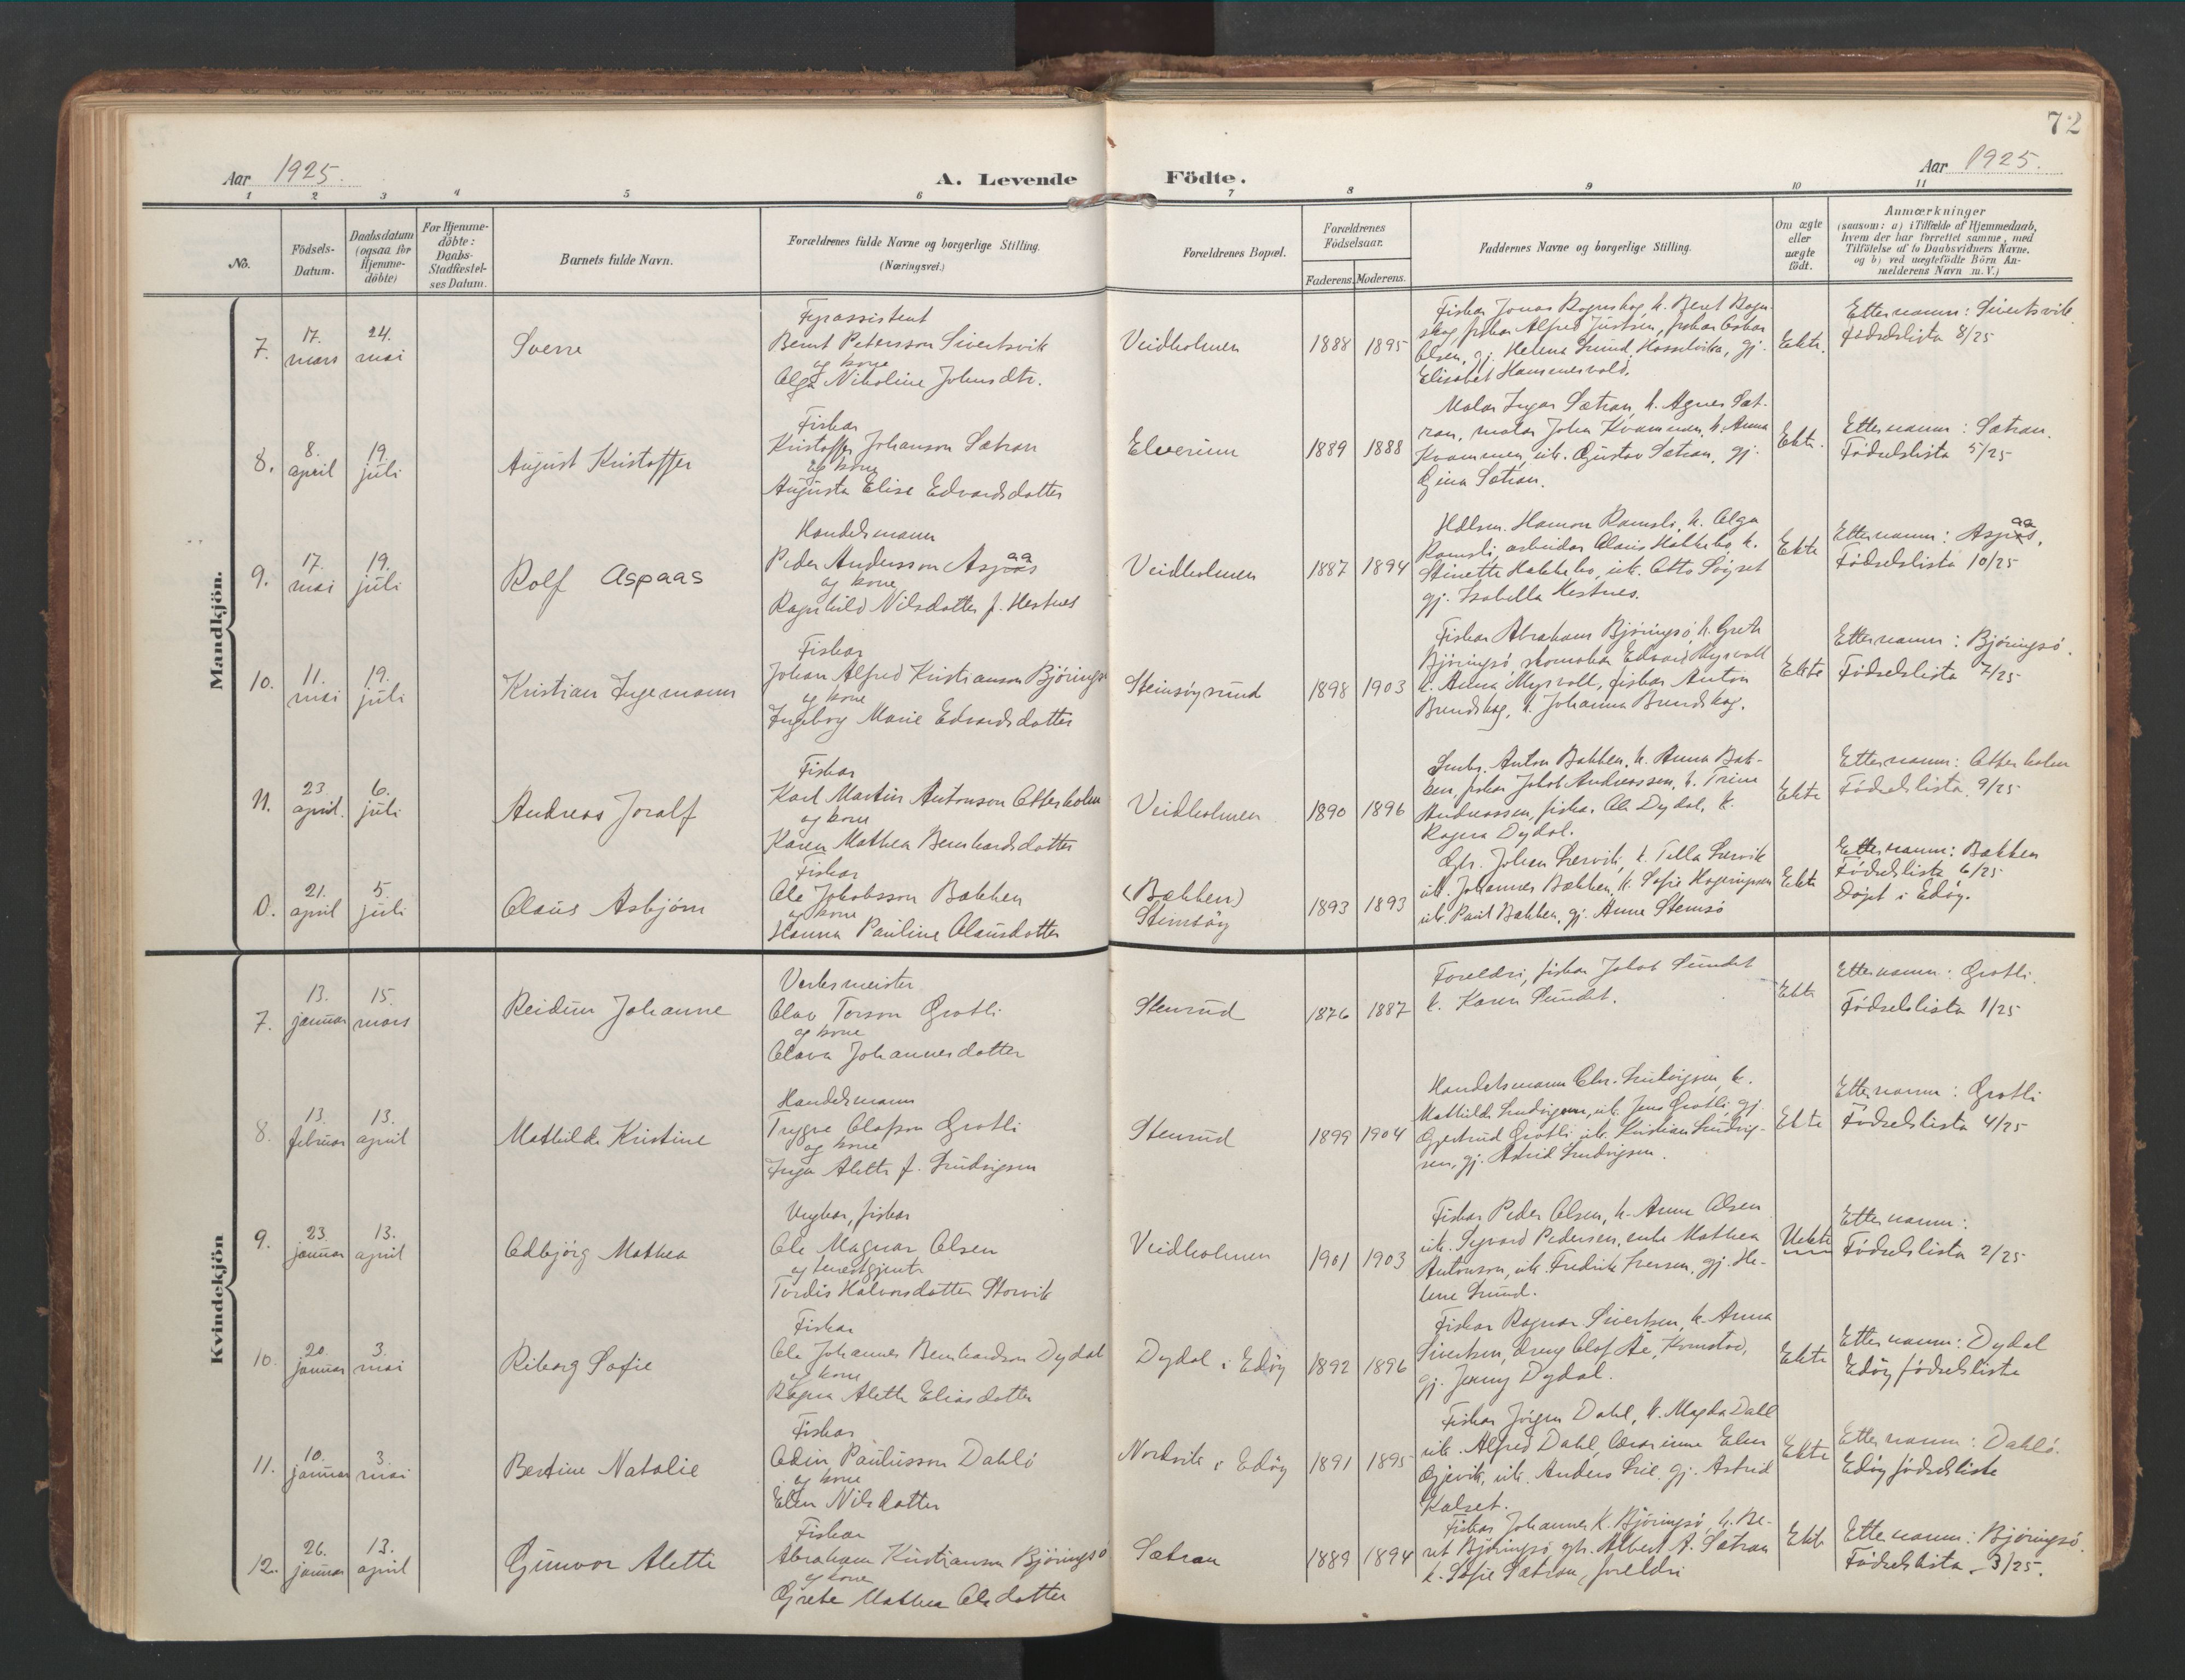 72
Aar 1925.
A. Levende Födte.
Aar 1925.
1 2 3 4 5 6 7 8 9 10 11
No.
Födsels-
Datum.
Daabsdatum
(ogsaa for
Hjemme-
döbte)
For Hjemme-
döbte:
Daabs-
Stadfæstel-
ses Datum.
Barnets fulde Navn.
Forældrenes fulde Navne og borgerlige Stilling.
(Næringsvei.)
Forældrenes Bopæl.
Forældrenes
Födselsaar.
Faderens. Moderens.
Faddernes Navne og borgerlige Stilling.
Om ægte
eller
uægte
födt.
Anmærkninger
(saasom: a) i Tilfælde af Hjemmedaab,
hvem der har forrettet samme, med
Tilföielse af to Daabsvidners Navne.
og b) ved uægtefödte Börn An-
melderens Navn m. V.)
Mandkjön.
7.
17.
mars
24.
mai
Sverre
Fyrassistent
Bernt Petersson Sivertsvik
og kone
Olga Nikoline Johnsdtr.
Veidholmen
1888 1895
Fisker Jonas Ragnskog, k. Beret Ragn-
skog, fiskar Alfred Justsen, fiskar Oskar
Olsen, gj. Helena Lund, Hasselvika, gj.
Elisabet Hammervold.
Ekte.
Etternamn: Sivertsvik.
Fødselslista 8/25
8.
8.
april
19.
juli
August Kristoffer
Fiskar
Kristoffer Johanson Sætran
og kone
Augusta Elise Edvardsdatter
Elverum
1889 1888
Malar Ingar Sætran, k. Agnes Sæt-
ran, malar Johan Kvammen, k. Anna
Kvammen, uk. Gustav Sætran, gj.
Gina Sætran.
Ekte.
Etternamn: Sætran.
Fødselslista 5/25
9.
17.
mai
19.
juli
Rolf Aspaas
Handelsmann
Peder Andersson Aspaas
og kone
Ragnhild Nilsdatter f. Hestnes
Veidholmen
1887 1894
Hdlsm. Hamon Ramsli, k. Olga
Ramsli, arbeidar Claus Hakkebo, k.
Stinette Hakkebo, uk. Otto Svigset
gj. Isabella Hestnes.
Ekte
Etternamn: Aspaas.
Fødselslista 10/25
10.
11.
mai
19.
juli
Kristian Ingemann
Fiskar
Johan Alfred Kristianson Bjøringsø
og kone
Ingeborg Marie Edvardsdatter
Steinsøysund
1898 1903
Fiskar Abraham Bjøringsø, k. Grete
Bjøringsø, skomakar Edvard Myrvoll
k. Anna Myrvoll, fiskar Anton
Brundskog, k. Johanna Brundskog.
Ekte
Etternamn: Bjøringsø.
Fødselslista 7/25
11.
23.
april.
6.
juli
Andreas Joralf
Fiskar
Karl Martin Antonson Otterholm
og kone
Karen Mathea Bernhardsdatter
Veidholmen
1890 1896
Smbr. Anton Bakken, k. Anna Bak-
ken, fiskar Jakob Andreassen, k. Trine
Andreassen, fiskar Ole Dydal, k.
Ragna Dydal.
Ekte
Etternamn: Otterholm
Fødselslista 9/25
0.
21.
april
5.
juli
Claus Asbjørn
Fiskar
Ole Jakobsson Bakken
og kone
Hanna Pauline Clausdatter
(Bakken)
Steinsøy
1893 1893
Gbr. Johan Lervik, k. Tella Lervik
uk. Johannes Bakken, k. Sofie
uk. Paul Bakken, gj. Anne Stensø
Ekte
Etternamn: Bakken
Fødselslista 6/25
Døpt i Edøy.
Kvindekjön
7.
13.
januar
15.
mars
Reidun Johanne
Verksmeister
Olav Torson Grotli
og kone
Olava Johannesdatter
Stensund
1876 1887
Foreldri, fiskar Jakob Sundet
k. Karen Sundet.
Ekte
Etternamn: Grotli.
Fødselslista 1/25
8.
13.
februar
13.
april
Mathilde Kristine
Handelsmann
Trygve Olafson Grotli
og kone
Inga Alette f. Ludvigsen
Stensund
1899 1904
Handelsmann Chr. Ludvigsen, k.
Mathilde Ludvigsen, uk. Jens Grotli, gj.
Gjertrud Grotli, uk. Kristian Ludvig-
sen, gj. Astrid Ludvigsen.
Ekte
Etternamn: Grotli
Fødselslista 4/25
9.
23.
januar
13.
april
Odbjørg Mathea
Ungkar, fiskar
Ole Magnar Olsen
og tenestgjente
Tordis Halvorsdatter Storvik
Veidholmen
1901 1903
Fiskar Peder Olsen, k. Anne Olsen
uk. Sigvard Pedersen, enke Mathea
Antonson, uk. Fredrik Iversen, gj. He-
lene Lund.
Uekte
Etternamn:
Fødselslista 2/25
10.
20.
januar
3.
mai
Riborg Sofie
Fiskar
Ole Johannes Bernhardson Dydal
og kone
Ragna Alette Eliasdatter
Dydal i Edøy
1892 1896
Fiskar Ragnar Sivertsen, k. Anna
Sivertsen, dreng Olaf Åe, Kornstad,
gj. Jenny Dydal.
Ekte
Etternamn: Dydal
Edøy fødselsliste
11.
10.
januar
3.
mai
Bertine Natalie
Fiskar
Odin Paulusson Dahlø
og kone
Elen Nilsdatter
Nordvik i Edøy
1891 1895
Fiskar Jørgen Dahl, k. Magda Dahl
uk. Alfred Dahl, lærarinne Elen
Gjevik, uk. Anders Lie, gj. Astrid
Kalset.
Ekte
Etternamn: Dahlø.
Edøy fødselsliste
12.
26.
januar
13.
april
Gunvor Alette
Fiskar
Abraham Kristianson Bjøringsø
og kone
Grete Mathea Olsdatter
Sætran
1889 1894
Fiskar Johannes K. Bjøringsø, k. Be-
ret Bjøringsø, gbr. Albert A. Sætran
k. Sofie Sætran, foreldri
Ekte
Etternamn: Bjøringsø.
Fødselslista 3/25.